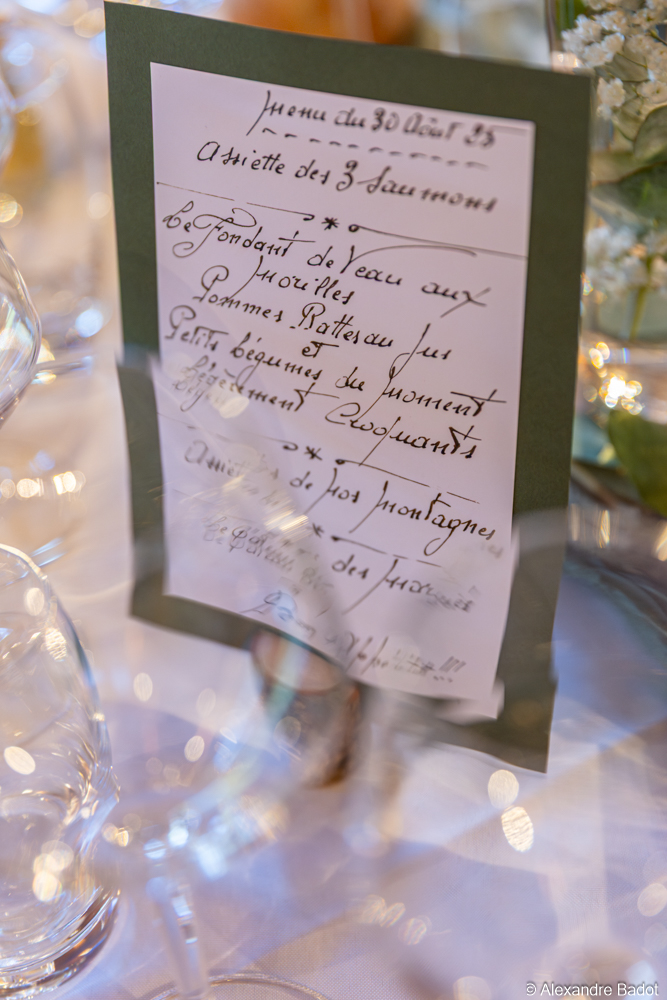 Menu du 30 Août 25
Assiette des 3 Saumons
Le Fondant de Veau aux
Morilles
Pommes Rattes au Jus
et
Petits Légumes du Moment
Légèrement Croquants
de nos Montagnes
des
© Alexandre Badot